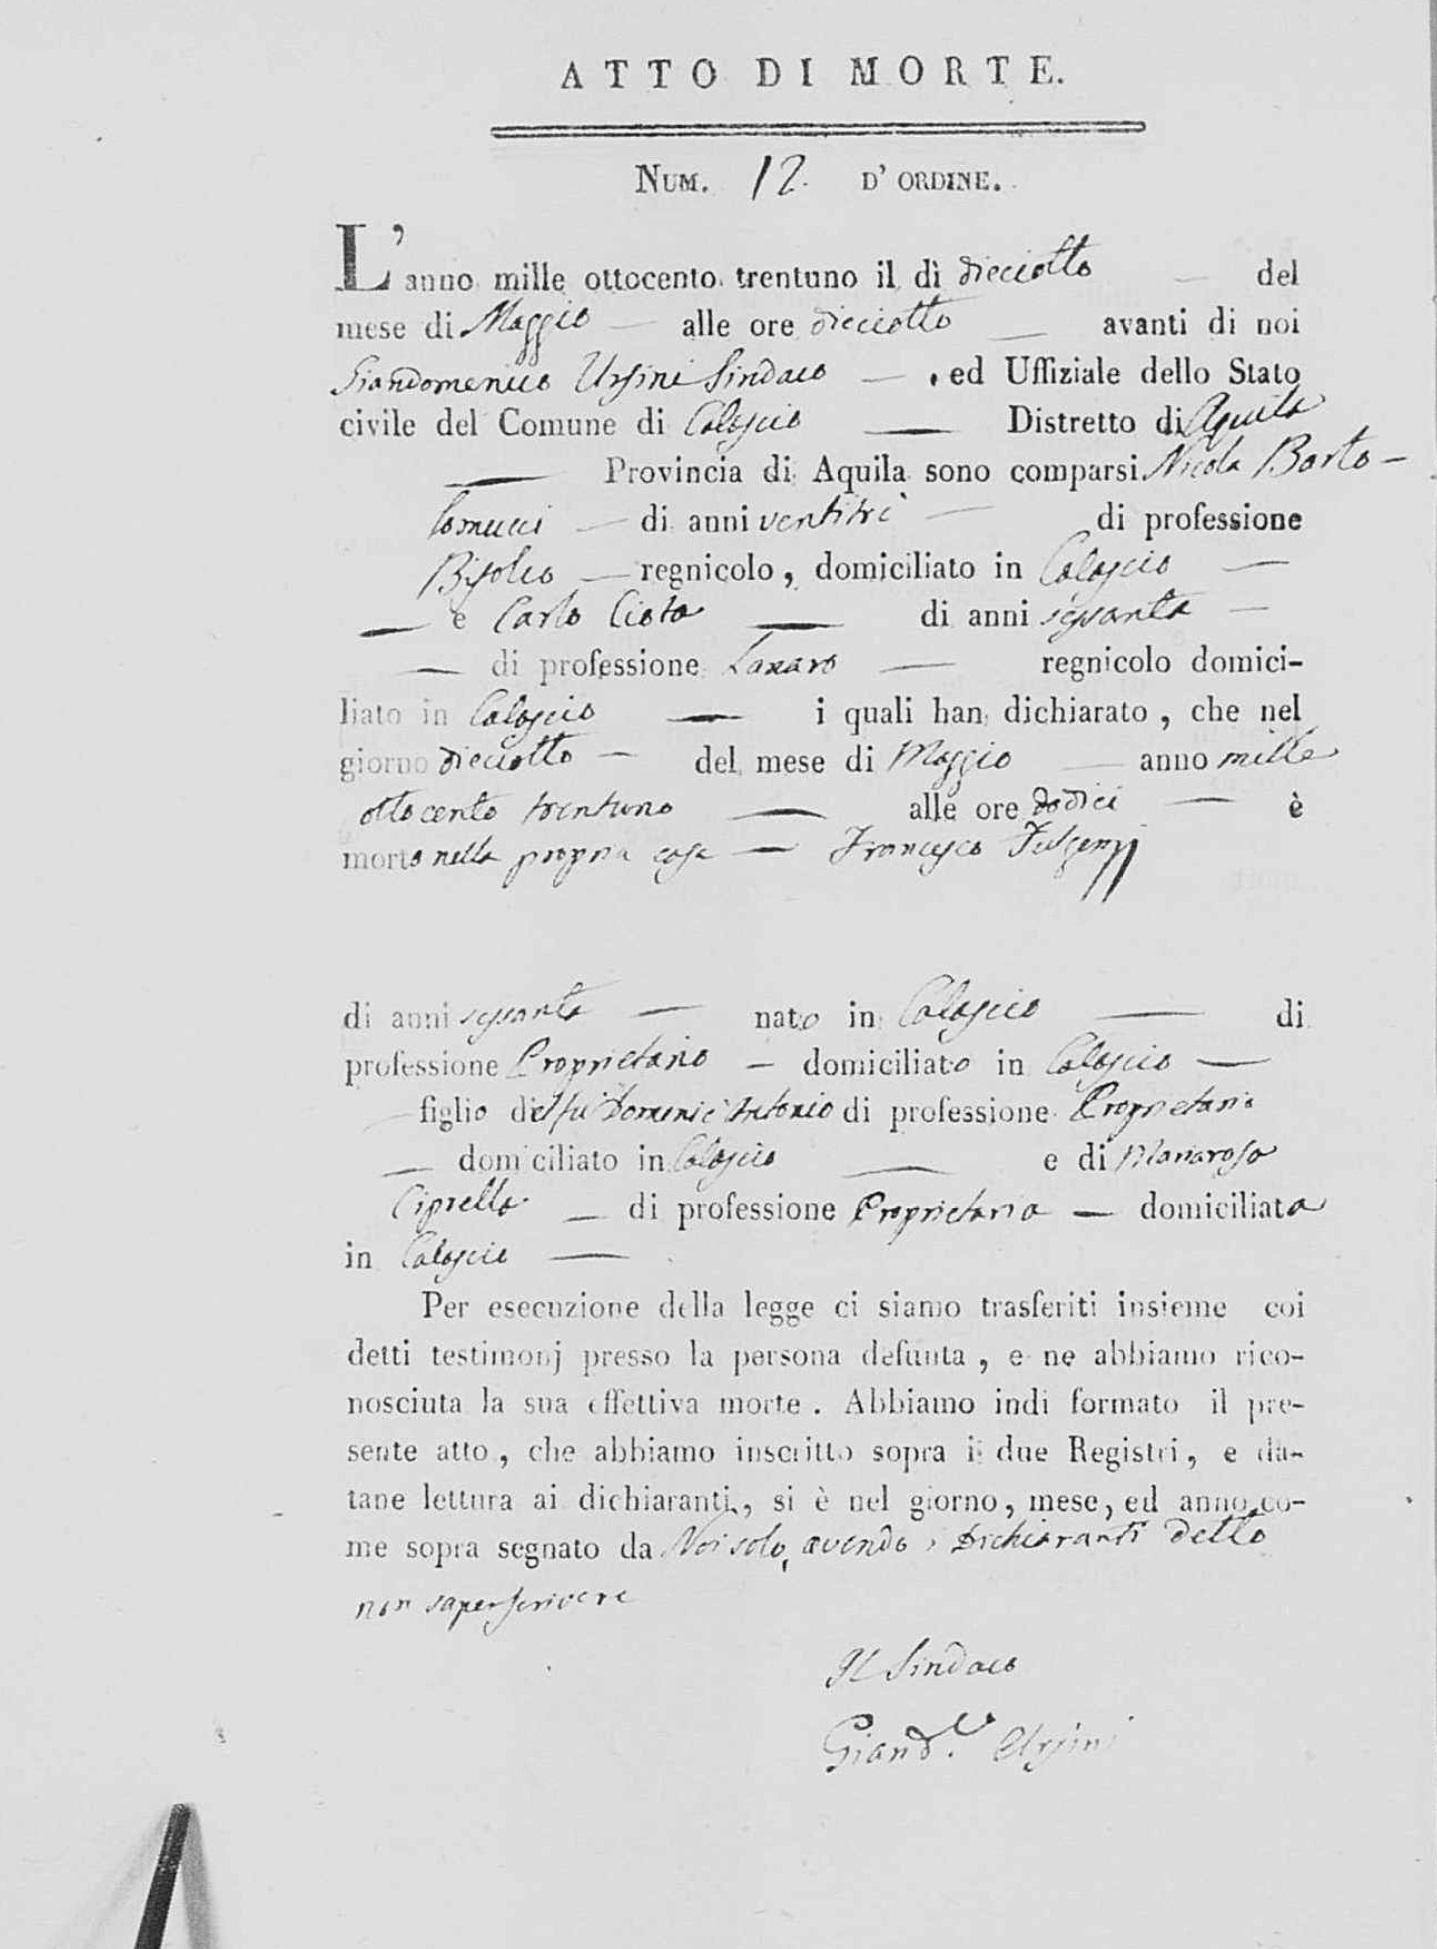 ATTO DI MORTE.
NUM. 12. D'ORDINE.
L'anno mille ottocento trentuno il dì dieciotto — del
mese di Maggio — alle ore dieciotto — avanti di noi
Giandomenico Ursini Sindaco — ed Uffiziale dello Stato
civile del Comune di Calascio — Distretto di Aquila
— Provincia di Aquila sono comparsi Nicola Barto-
lomucci — di anni ventitrè — di professione
Bifolco — regnicolo, domiciliato in Calascio —
— e Carlo Ciota — di anni sessanta —
— di professione Lanaro — regnicolo domici-
liato in Calascio — i quali han dichiarato, che nel
giorno dieciotto — del mese di Maggio — anno mille
ottocento trentuno — alle ore dodici — è
morto nella propria casa — Francesco Fulgenzj
di anni sessanta — nato in Calascio — di
professione Proprietario — domiciliato in Calascio —
figlio del fu Domenic'Antonio di professione Proprietario
— domiciliato in Calascio — e di Mariarosa
Ciprella — di professione Proprietaria — domiciliata
in Calascio —
Per esecuzione della legge ci siamo trasferiti insieme coi
detti testimonj presso la persona defunta, e ne abbiamo rico-
nosciuta la sua effettiva morte. Abbiamo indi formato il pre-
sente atto, che abbiamo inscritto sopra i due Registri, e da-
tane lettura ai dichiaranti, si è nel giorno, mese, ed anno co-
me sopra segnato da Noi solo, avendo i Dichiaranti detto
non saper scrivere
Il Sindaco
Giand.co Ursini